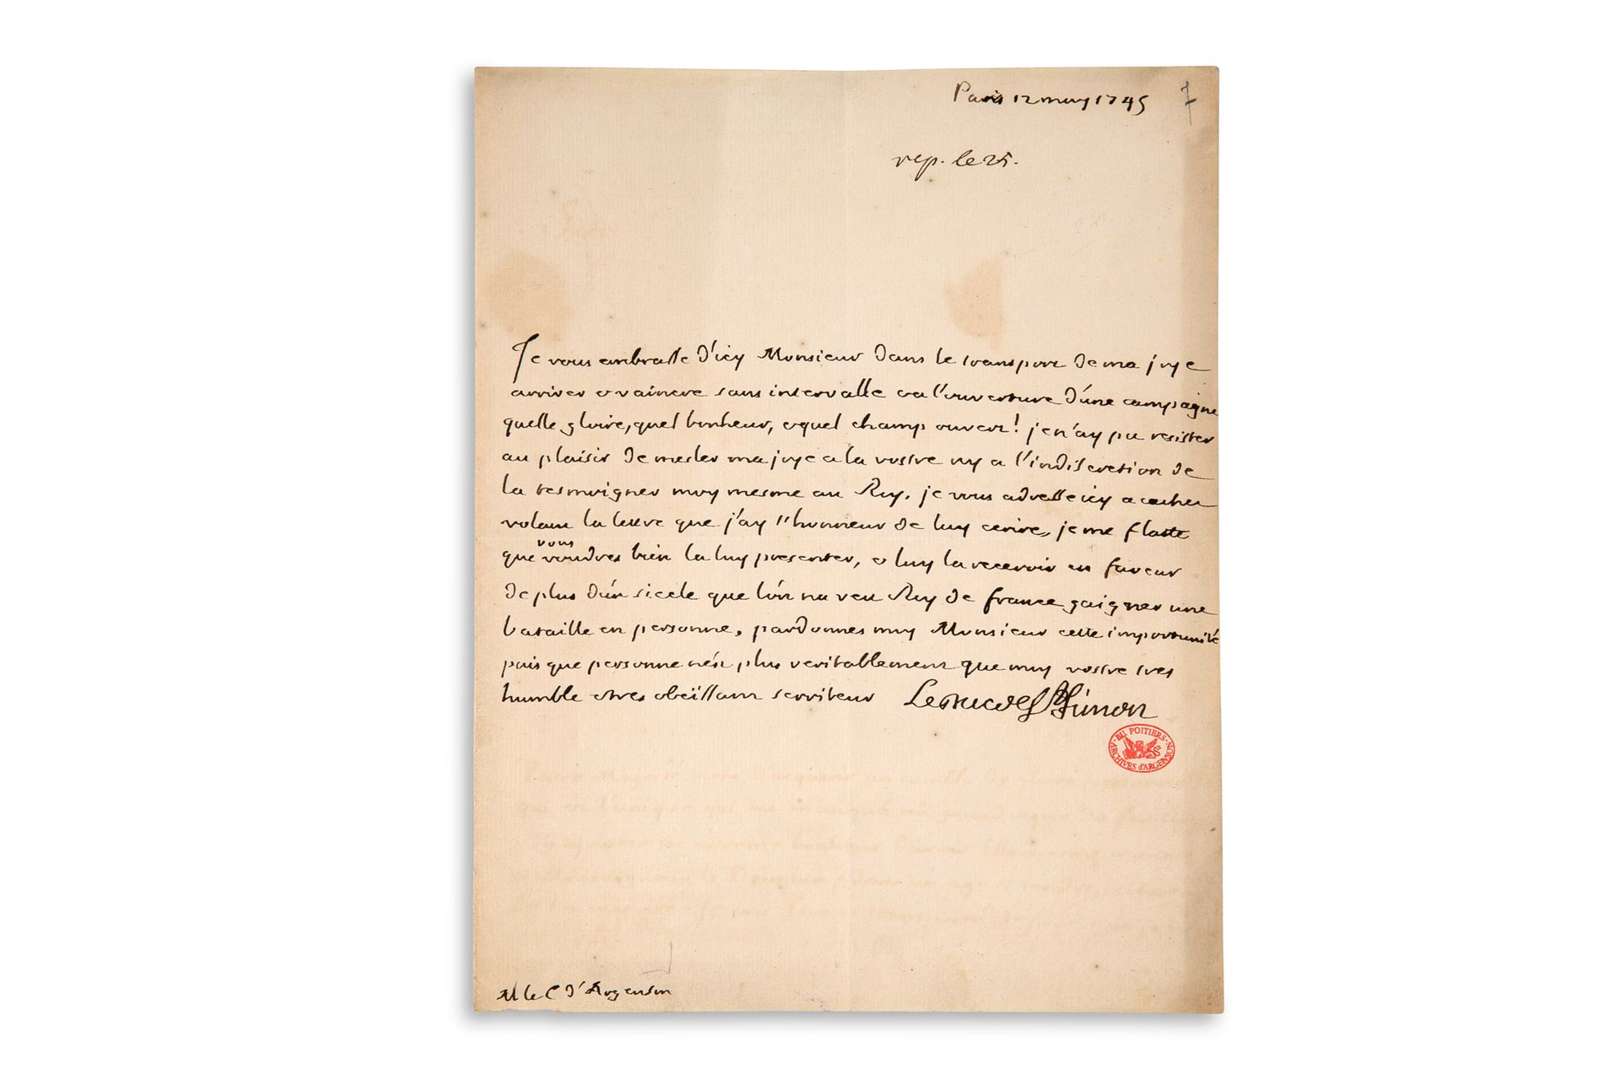 Paris 12 may 1745
7
rep. le 25.
Je vous embrasse d'icy Monsieur dans le transport de ma joye
arriver & vaincre sans intervalle & a l'ouverture d'une campagne
quelle gloire, quel bonheur, & quel champ ouvert! je n'ay pu resister
au plaisir de mesler ma joye a la vostre ny a l'indiscretion de
la tesmoigner moy mesme au Roy. je vous adresse icy a cachet
volant la lettre que j'ay l'honneur de luy ecrire, je me flatte
que vous voudres bien la luy presenter, & luy la recevoir en faveur
de plus d'un siecle que l'on na veu Roy de france gaigner une
bataille en personne. pardonnes moy Monsieur cette importunité
puis que personne n'est plus veritablement que moy vostre tres
humble & tres obeissant serviteur Le Duc de St Simon
BU POITIERS
ARCHIVES d'ARGENSON
M le C d'Argenson